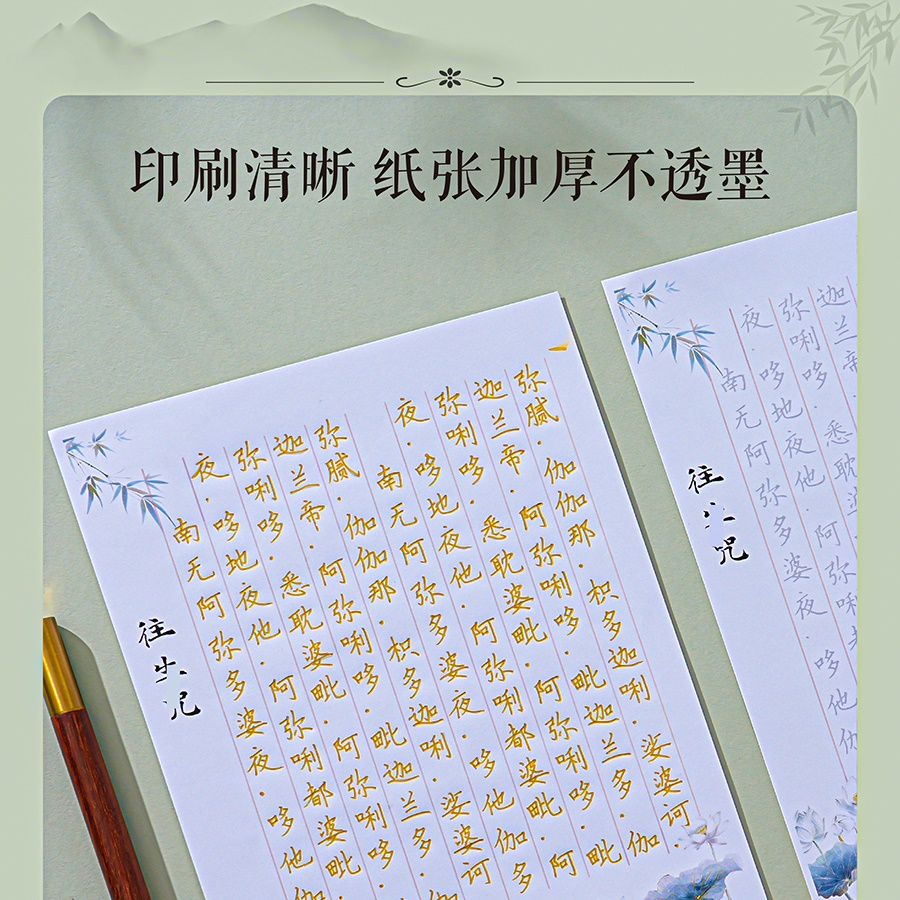 印刷清晰 纸张加厚不透墨
往生咒
南无阿弥多婆夜·哆他伽
夜·哆地夜他·阿弥唎都婆毗·
弥唎哆·悉耽婆毗·阿弥唎哆·
迦兰帝·阿弥唎哆·毗迦兰多·伽
弥腻·伽伽那·枳多迦唎·娑婆诃
南无阿弥多婆夜·哆他伽多
夜·哆地夜他·阿弥唎都婆毗·阿
弥唎哆·悉耽婆毗·阿弥唎哆·毗
迦兰帝·阿弥唎哆·毗迦兰多·伽
弥腻·伽伽那·枳多迦唎·娑婆诃·
往生咒
南无阿弥多婆夜·哆他伽
夜·哆地夜他·阿弥唎
弥唎哆·悉耽
迦兰帝